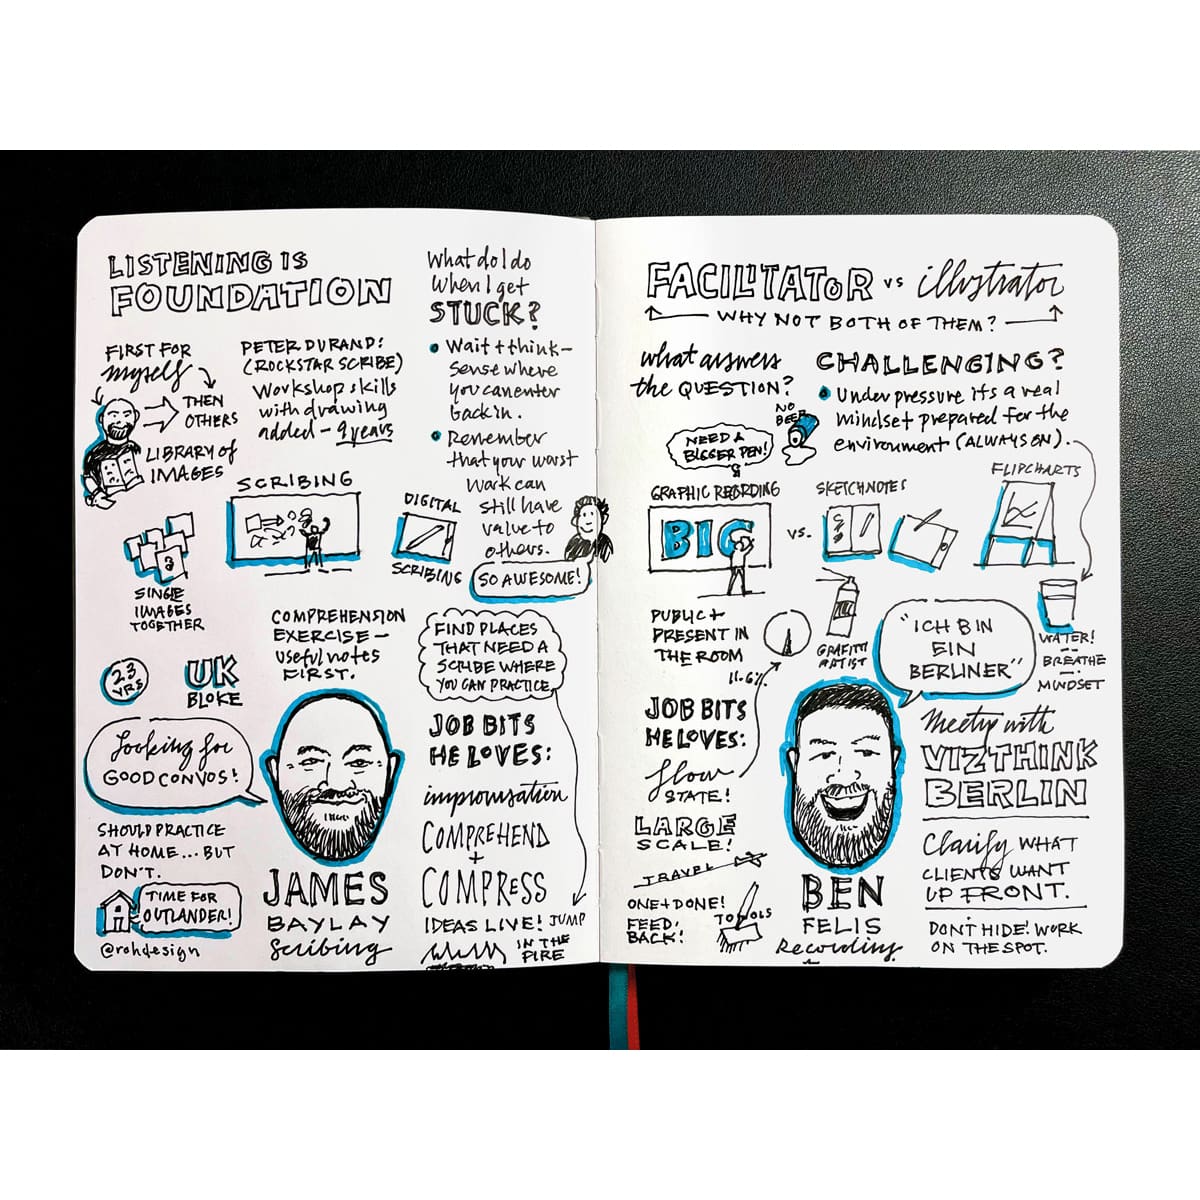 LISTENING IS
FOUNDATION
FIRST FOR
myself
THEN
OTHERS
LIBRARY of
IMAGES
PETER DURAND:
(ROCKSTAR SCRIBE)
Workshop skills
with drawing
added – 9 years
SCRIBING
DIGITAL
SCRIBING
SINGLE
IMAGES
TOGETHER
2.3
YRS
UK
BLOKE
COMPREHENSION
EXERCISE –
useful notes
FIRST.
Looking for
GOOD CONVOS!
SHOULD PRACTICE
AT HOME... BUT
DON'T.
TIME FOR
OUTLANDER!
@rohdesign
JAMES
BAYLAY
Scribing
What do I do
When I get
STUCK?
Wait + think –
Sense where
you can enter
back in.
Remember
that your worst
Work can
still have
value to
others.
SO AWESOME!
FIND PLACES
THAT NEED A
SCRIBE WHERE
YOU CAN PRACTICE
JOB BITS
HE LOVES:
improvisation
COMPREHEND
+
COMPRESS
IDEAS LIVE!
JUMP
IN THE
FIRE
FACILITATOR vs illustrator
WHY NOT BOTH OF THEM?
what answers
the QUESTION?
NO
BEER
NEED A
BIGGER PEN!
GRAPHIC RECORDING
BIG
VS.
SKETCHNOTES
CHALLENGING?
Under pressure its a real
mindset prepared for the
environment (ALWAYS ON).
FLIPCHARTS
PUBLIC +
PRESENT IN
THE ROOM
11.6%
GRAFITTI
ARTIST
"ICH BIN
EIN
BERLINER"
WATER!
BREATHE
MINDSET
JOB BITS
HE LOVES:
flow
STATE!
LARGE
SCALE!
TRAVEL
ONE + DONE!
FEED.
BACK!
TOOLS
BEN
FELIS
Recording
Meetup with
VIZTHINK
BERLIN
Clarify WHAT
CLIENTS WANT
UP FRONT.
DON'T HIDE! WORK
ON THE SPOT.